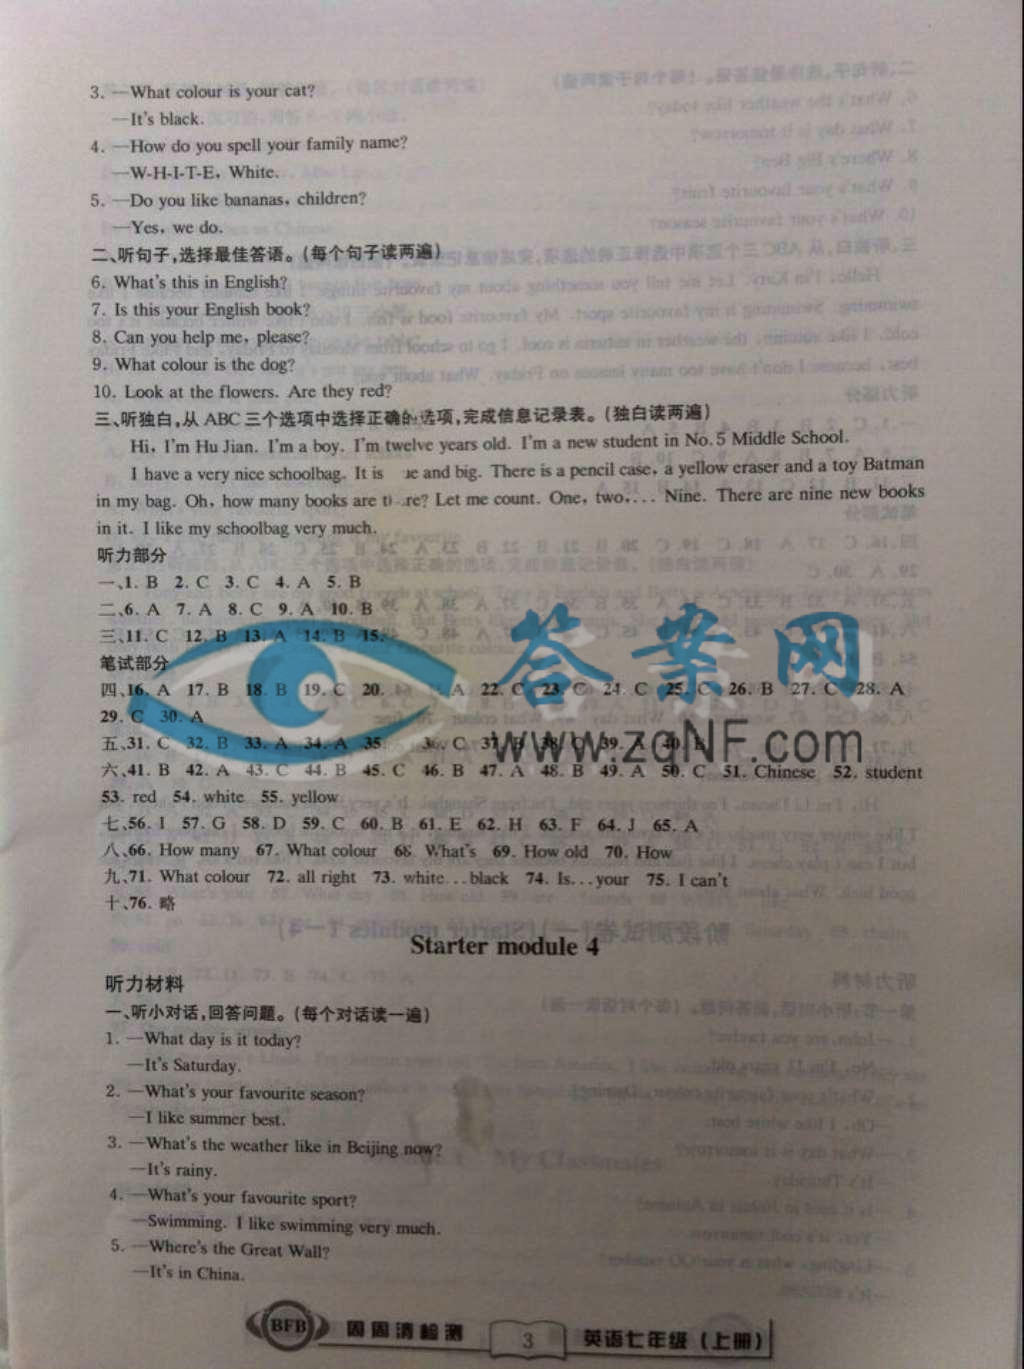 3. —What colour is your cat?
—It's black.
4. —How do you spell your family name?
—W-H-I-T-E, White.
5. —Do you like bananas, children?
—Yes, we do.
二、听句子,选择最佳答语。(每个句子读两遍)
6. What's this in English?
7. Is this your English book?
8. Can you help me, please?
9. What colour is the dog?
10. Look at the flowers. Are they red?
三、听独白,从 ABC 三个选项中选择正确的选项,完成信息记录表。(独白读两遍)
Hi, I'm Hu Jian. I'm a boy. I'm twelve years old. I'm a new student in No. 5 Middle School.
I have a very nice schoolbag. It is and big. There is a pencil case, a yellow eraser and a toy Batman
in my bag. Oh, how many books are Let me count. One, two,... Nine. There are nine new books
in it. I like my schoolbag very much.
听力部分
一、1. B 2. C 3. C 4. A 5. B
二、6. A 7. A 8. C 9. A 10. B
三、11. C 12. B 13. A 14. B 15.
笔试部分
四、16. A 17. B 18. B 19. C 20. A 22. C 23. C 24. C 25. C 26. B 27. C 28. A
29. C 30. A
五、31. C 32. B 33. A 34. A 35 36. C 37. B 38. C 39. A 40.
六、41. B 42. A 43. C 44. B 45. C 46. B 47. A 48. B 49. A 50. C 51. Chinese 52. student
53. red 54. white 55. yellow
七、56. I 57. G 58. D 59. C 60. B 61. E 62. H 63. F 64. J 65. A
八、66. How many 67. What colour 68. What's 69. How old 70. How
九、71. What colour 72. all right 73. white...black 74. Is...your 75. I can't
十、76. 略
答案网
www.zqNF.com
Starter module 4
听力材料
一、听小对话,回答问题。(每个对话读一遍)
1. —What day is it today?
—It's Saturday.
2. —What's your favourite season?
—I like summer best.
3. —What's the weather like in Beijing now?
—It's rainy.
4. —What's your favourite sport?
—Swimming. I like swimming very much.
5. —Where's the Great Wall?
—It's in China.
BFB 周周清检测 3 英语七年级(上册)